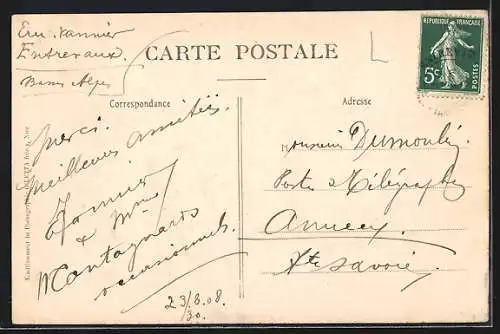 Em. Vannier
Entrevaux.
Basses Alpes
CARTE POSTALE
Correspondance
Adresse
RÉPUBLIQUE FRANÇAISE
5c
POSTES
Merci.
Meilleures amitiés
& Mme
Montagnards
occasionnels.
23/8.08.
/30.
Monsieur Dumoulin
Postes & Télégraphes
Annecy
Hte Savoie